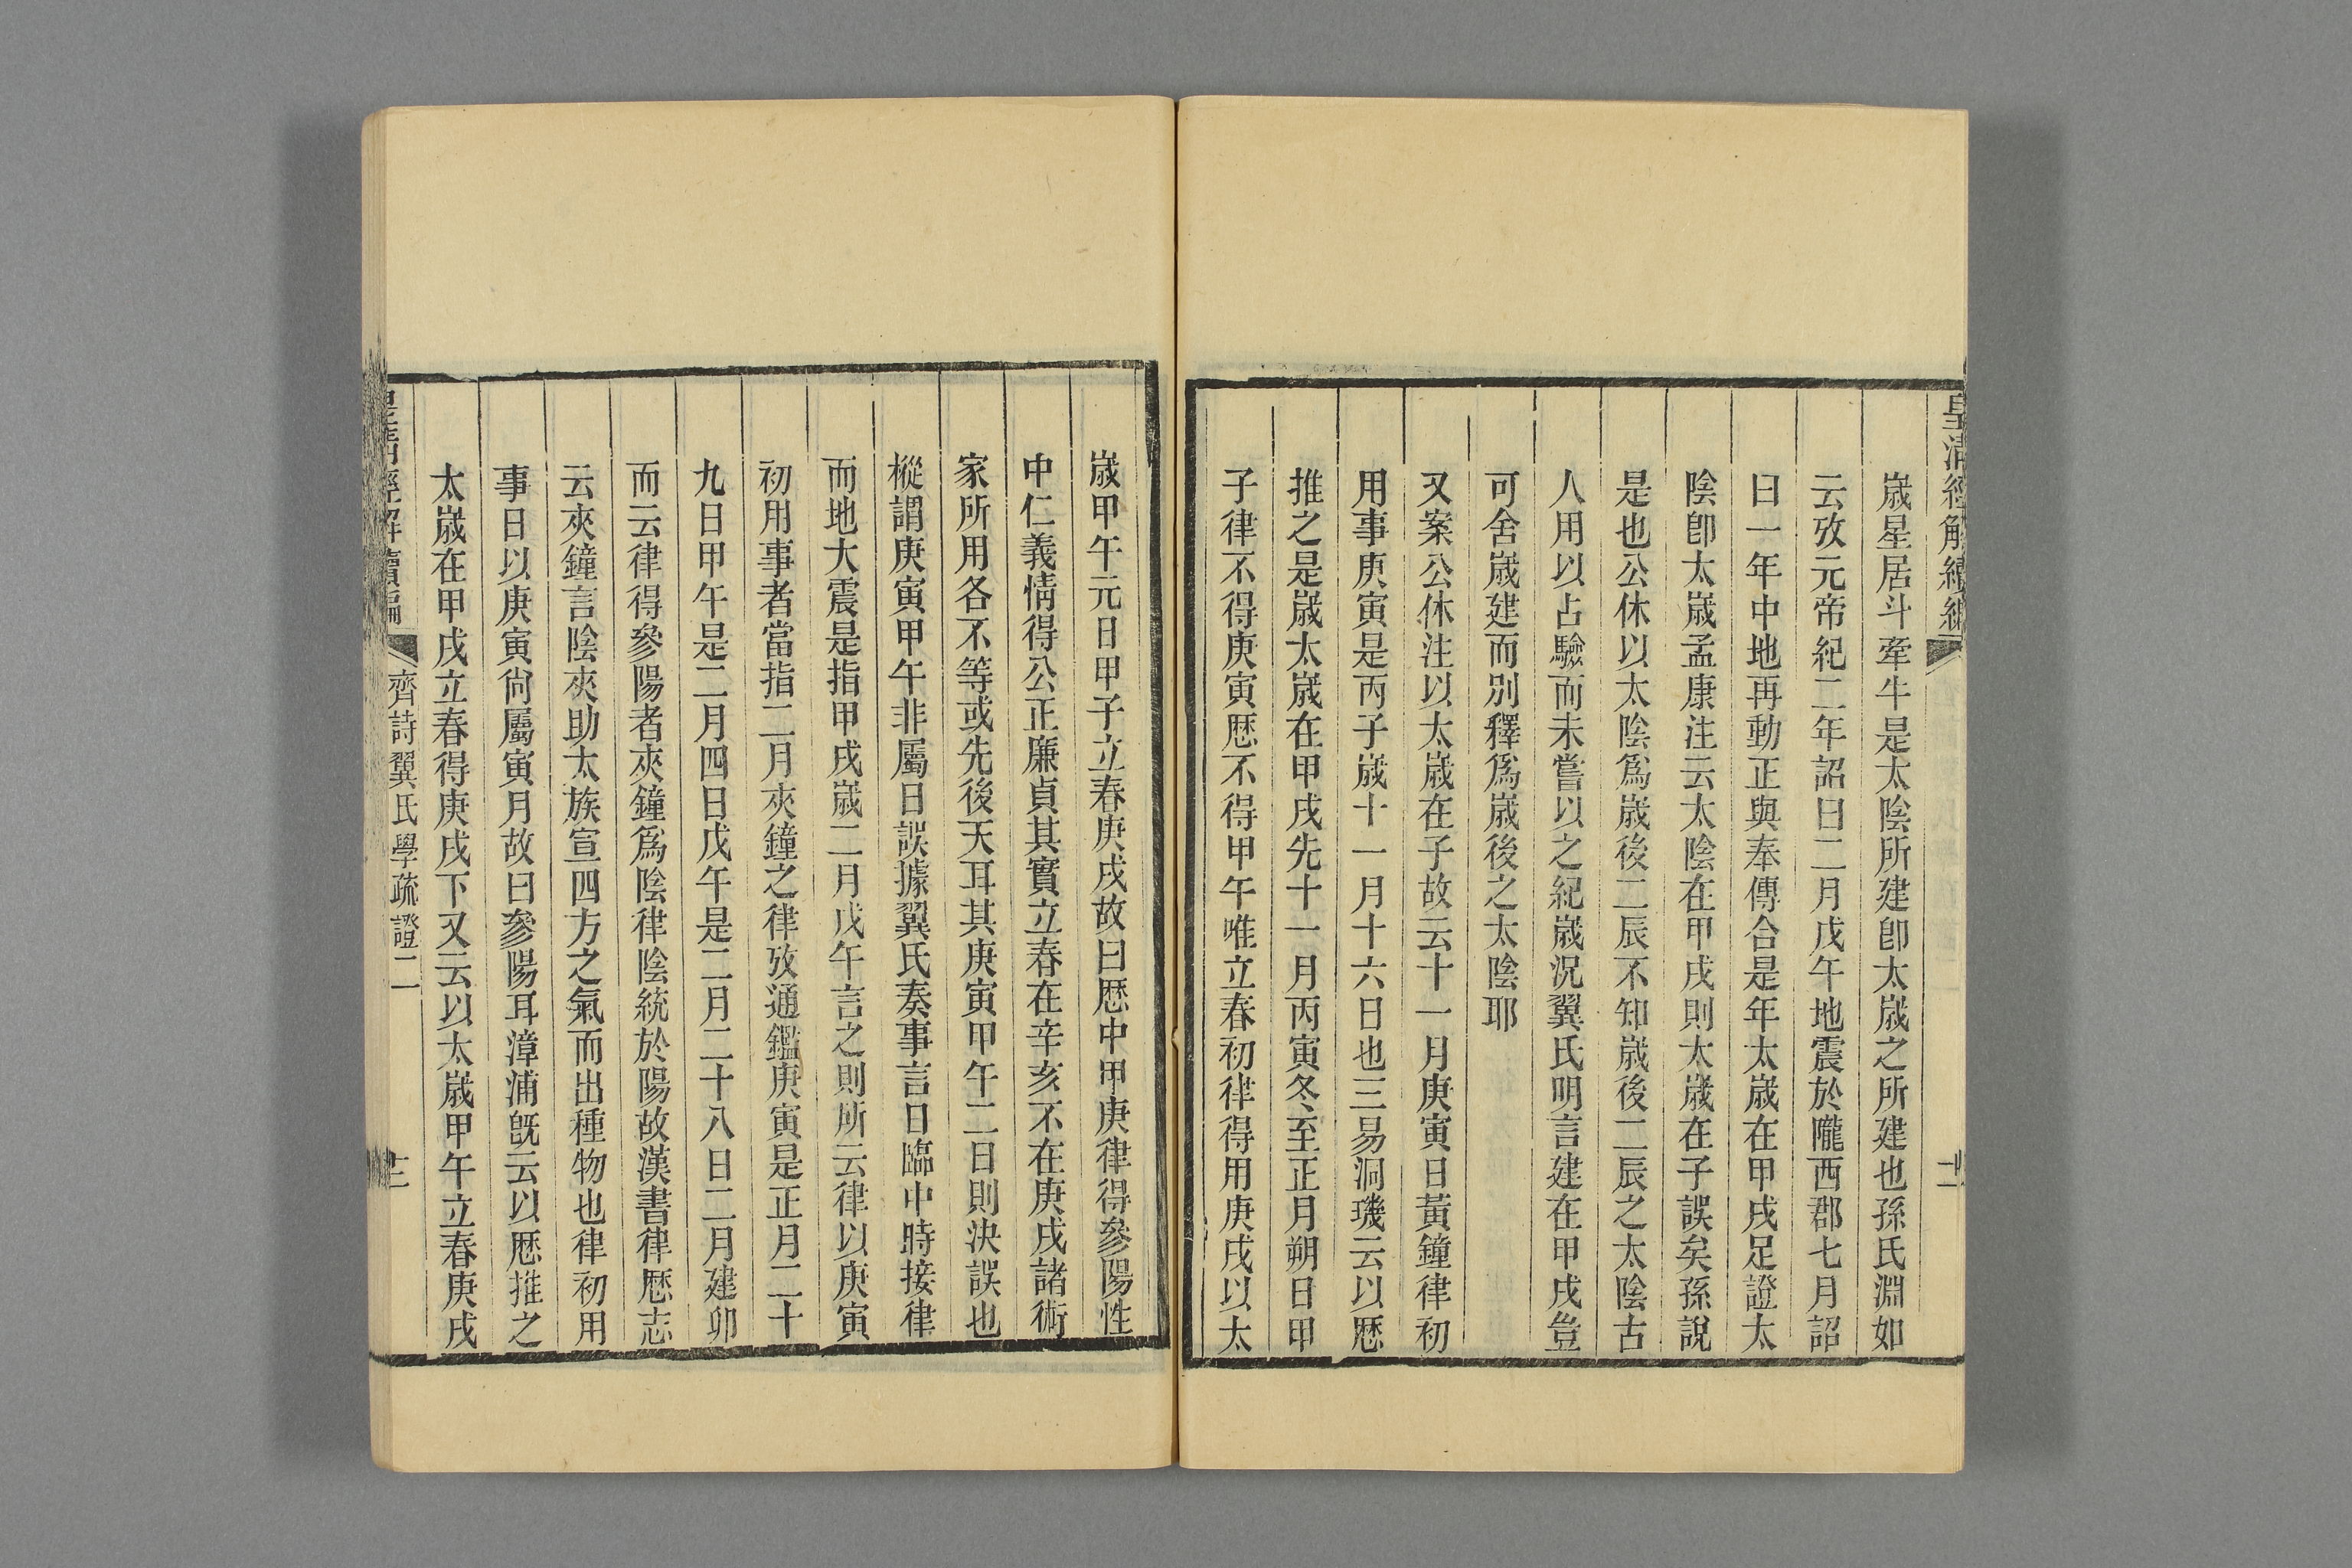 皇清經解續編
歲星居斗牽牛是太陰所建卽太歲之所建也孫氏淵如
云攷元帝紀二年詔曰二月戊午地震於隴西郡七月詔
曰一年中地再動正與奉傳合是年太歲在甲戌足證太
陰卽太歲孟康注云太陰在甲戌則太歲在子誤矣孫說
是也公休以太陰爲歲後二辰不知歲後二辰之太陰古
人用以占驗而未嘗以之紀歲況翼氏明言建在甲戌豈
可舍歲建而別釋爲歲後之太陰耶
又案公休注以太歲在子故云十一月庚寅日黃鐘律初
用事庚寅是丙子歲十一月十六日也三易洞璣云以厯
推之是歲太歲在甲戌先十一月丙寅冬至正月朔日甲
子律不得庚寅厯不得甲午唯立春初律得用庚戌以太
歲甲午元日甲子立春庚戌故曰厯中甲庚律得參陽性
中仁義情得公正廉貞其實立春在辛亥不在庚戌諸術
家所用各不等或先後天耳其庚寅甲午二日則決誤也
樅謂庚寅甲午非屬日誤據翼氏奏事言日臨中時接律
而地大震是指甲戌歲二月戊午言之則所云律以庚寅
初用事者當指二月夾鐘之律攷通鑑庚寅是正月二十
九日甲午是二月四日戊午是二月二十八日二月建卯
而云律得參陽者夾鐘爲陰律陰統於陽故漢書律厯志
云夾鐘言陰夾助太族宣四方之氣而出種物也律初用
事日以庚寅尙屬寅月故曰參陽耳漳浦旣云以厯推之
太歲在甲戌立春得庚戌下又云以太歲甲午立春庚戌
皇清經解續編
齊詩翼氏學疏證二